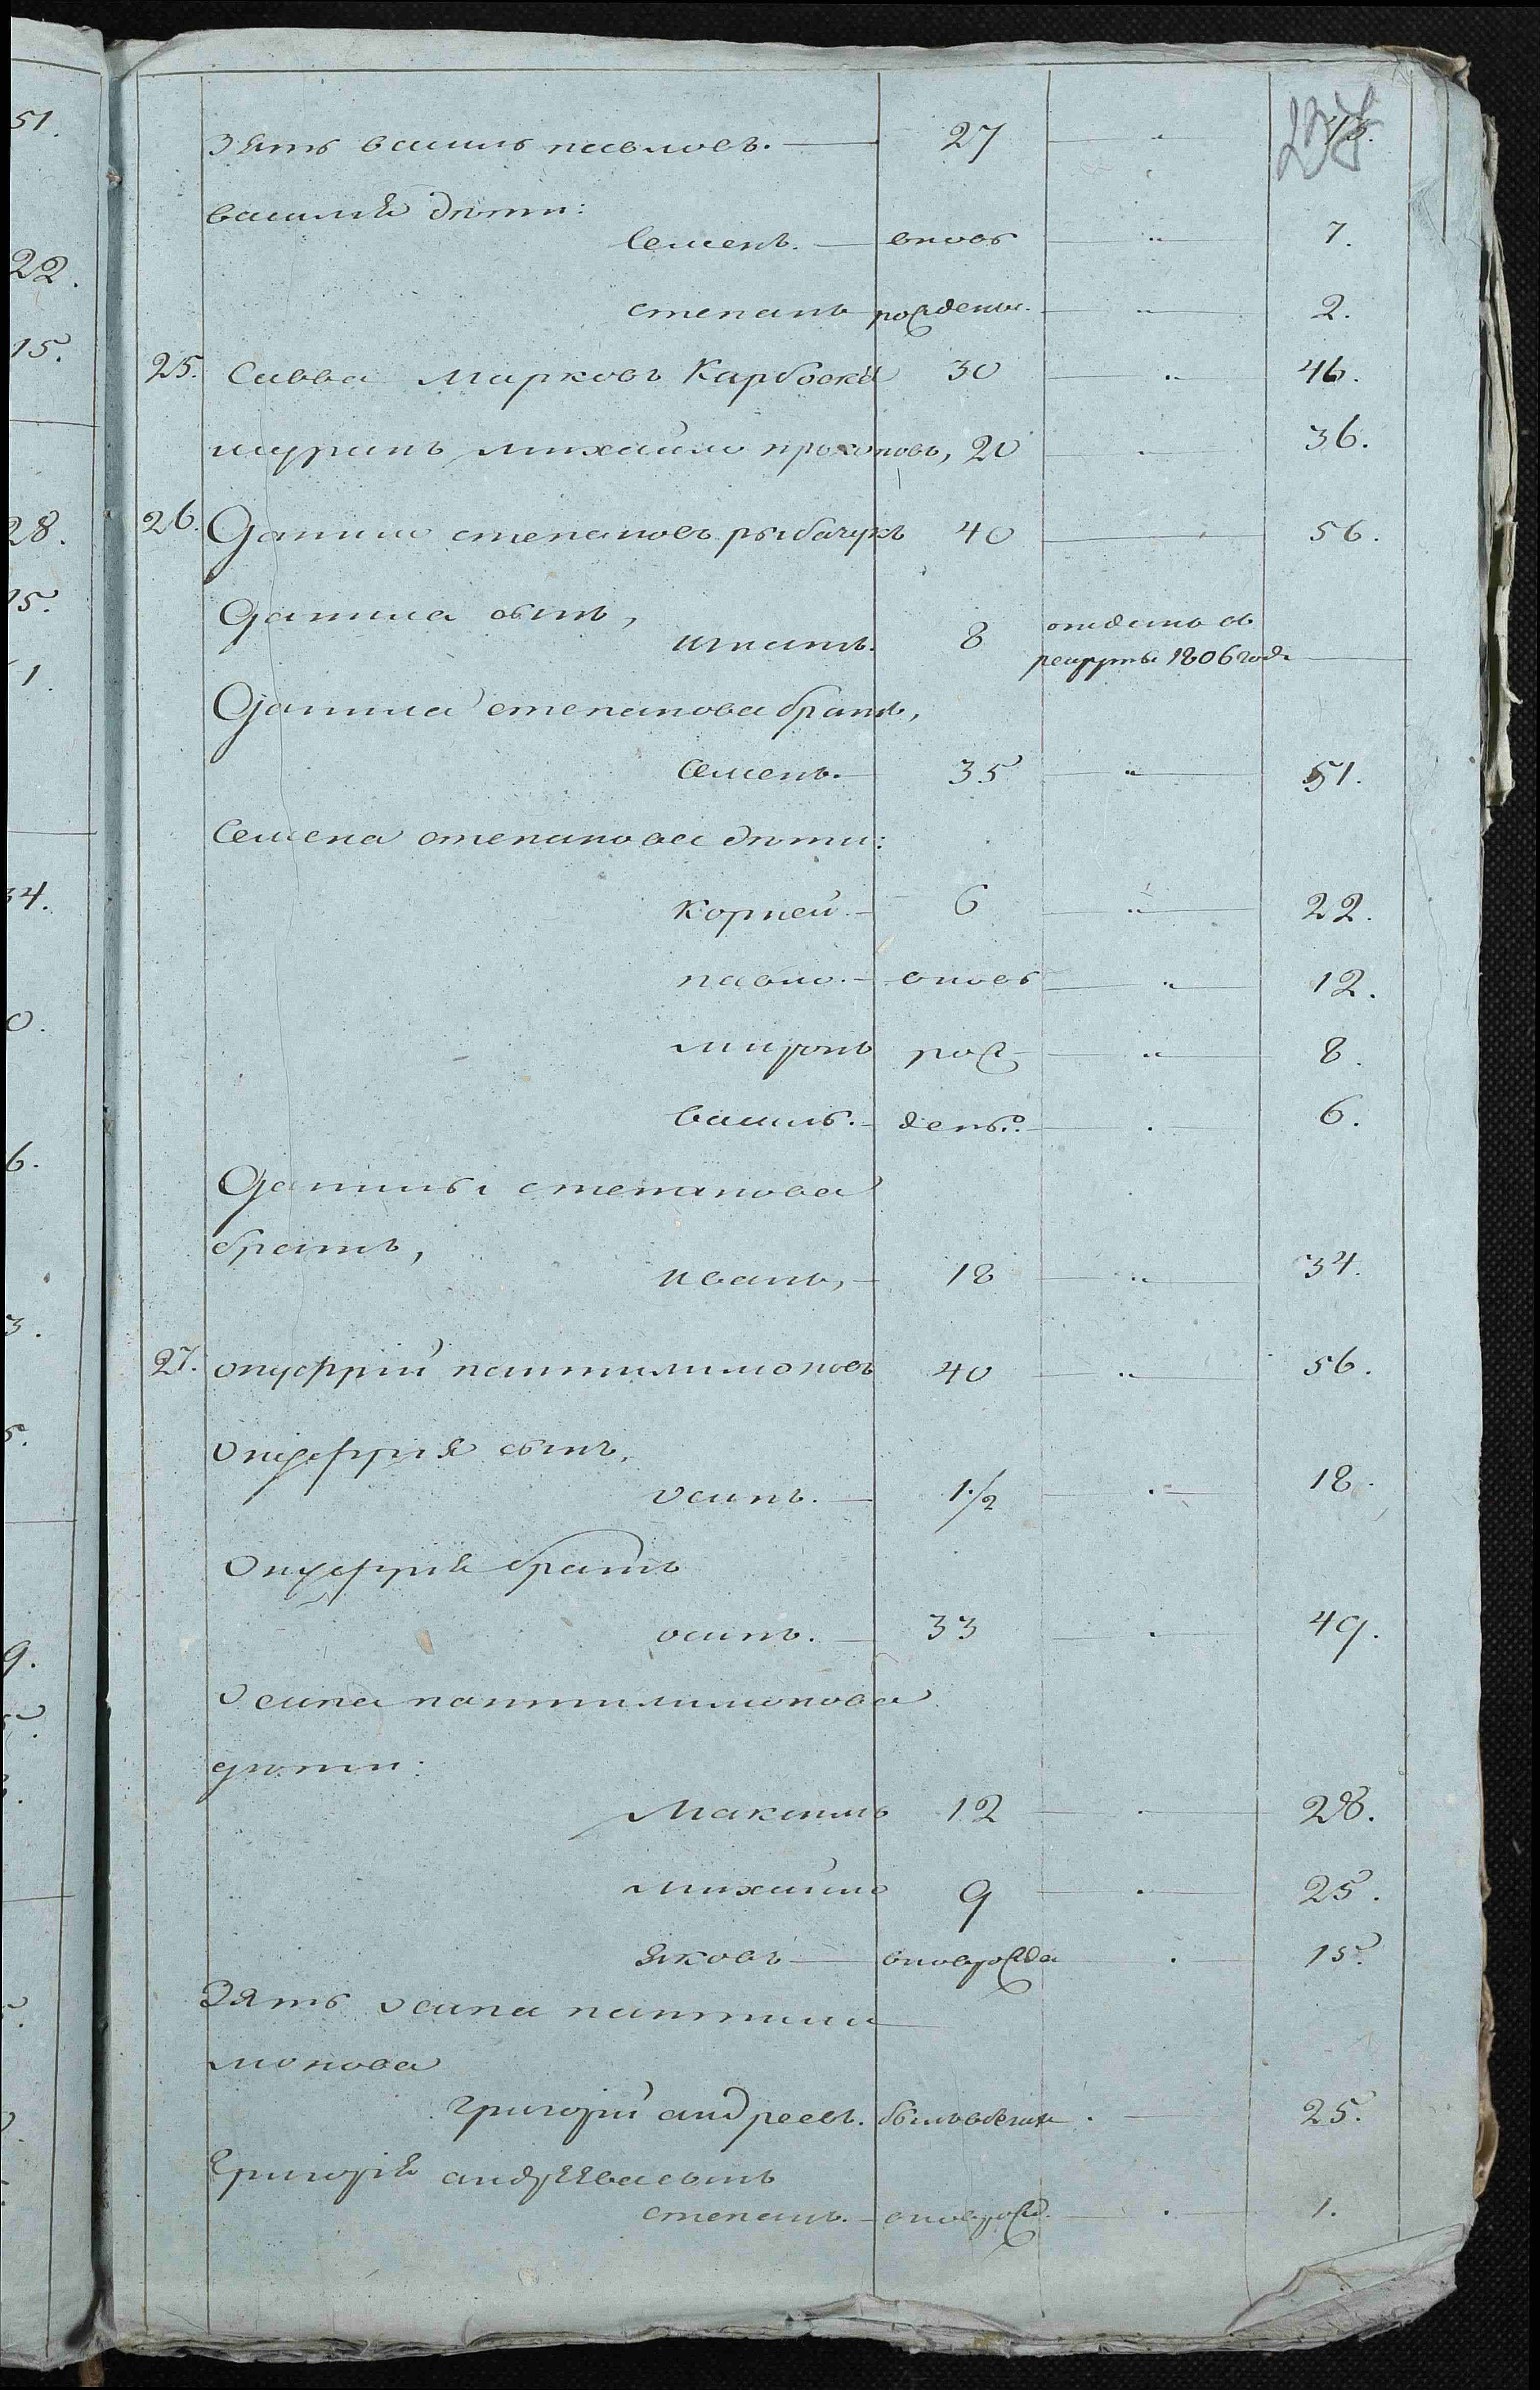 зять василь павловъ. 27
василія дѣти:
Семенъ. вновь 7.
степанъ рожденые. 2.
25. Савва Марковъ Карбовскій 30 46.
шуринъ михайло прокоповъ, 20 36.
26. Данило степановъ рыбачукъ 40 56.
Данила сынъ,
игнатъ. 8 отданъ въ
рекруты 1806 года
Данила степанова братъ,
Семенъ. 35 51.
Семена степанова дѣти:
Корней 6 22.
павло. вновь 12.
миронъ рож 8.
василь. деные 6.
Данилы степанова
братъ,
иванъ, 18 34.
27. онуфрій пантилимоновъ 40 56.
Онуфрия сынъ,
осипъ. 1/2 18.
Онуфрія братъ
осипъ. 33 49.
Осипа пантилимонова
дѣти:
Максимъ 12 28.
михайло 9 25.
яковъ вновь рожде 15.
Зять осипа пантили
монова
григорій андреевъ. былъ въ бегахъ 25.
Григорія андреева сынъ
степанъ. вновь рожд. 1.
51.
22.
15.
28.
15.
1.
34.
0.
6.
3.
5.
9.